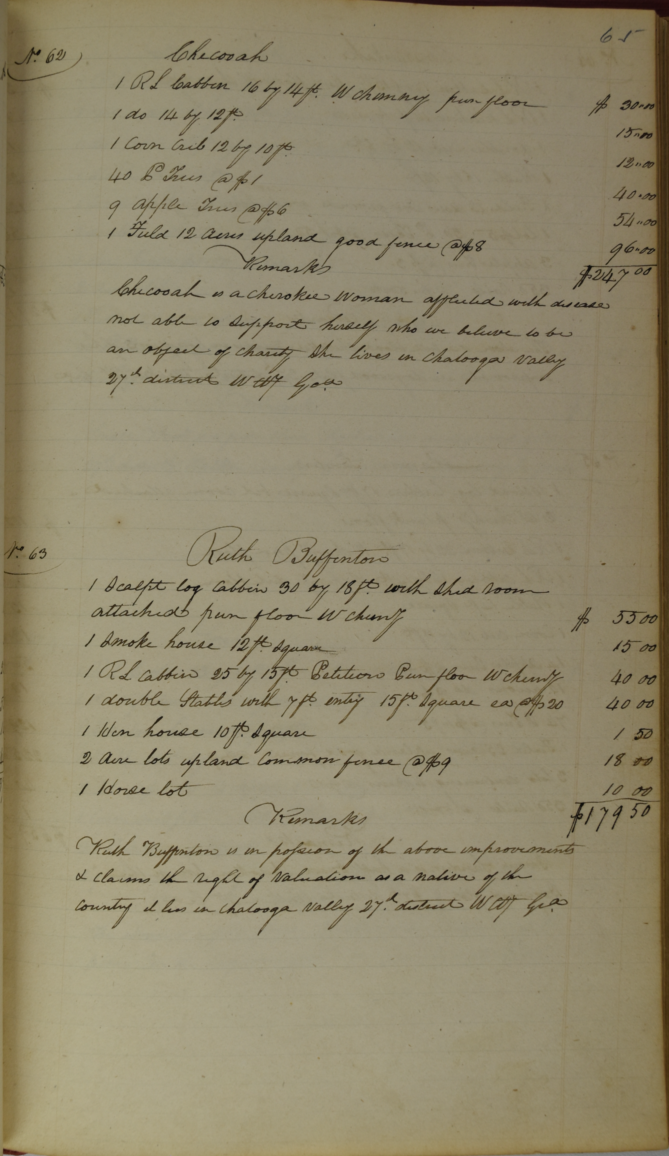 65
No. 62 Checooah
1 RL Cabbin 16 by 14 ft. W chimney pun floor $ 30.00
1 do 14 by 12 ft 15.00
1 Corn Crib 12 by 10 ft 12.00
40 P Trees @ $1 40.00
9 apple Trees @ $6 54.00
1 Field 12 acres upland good fence @ $8 96.00
Remarks $247 00
Checooah is a cherokee Woman afflicted with disease
not able to support herself who we believe to be
an object of charity She lives in Chatooga Valley
27th district
No. 63 Ruth Buffenton
1 Scalpt log Cabbin 30 by 18 ft. with shed room
attached pun floor W chimy $ 55 00
1 Smoke house 12 ft Square 15 00
1 RL Cabbin 25 by 15 ft. Petition Pun floor W chimy 40 00
1 double Stables with 7 ft. entry 15 ft. Square ea @ $20 40 00
1 Hen house 10 ft Square 1 50
2 Acre lots upland Common fence @ $9 18 00
1 Horse lot 10 00
Remarks $179 50
Ruth Buffenton is in possion of the above improvements
& claims the right of Valuation as a native of the
Country it lies in Chatooga Valley 27th district